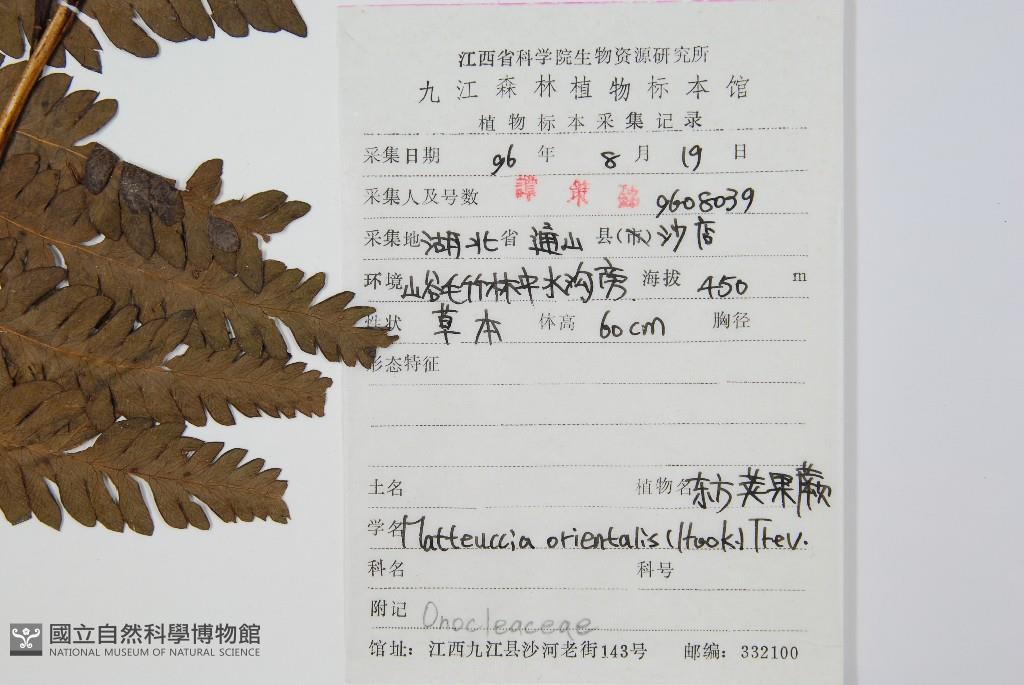 江西省科学院生物资源研究所
九江森林植物标本馆
植物标本采集记录
采集日期 96 年 8 月 19 日
采集人及号数 譚策銘 9608039
采集地 湖北 省 通山 县(市) 沙店
环境 山谷毛竹林中水沟旁 海拔 450 m
性状 草本 体高 60cm 胸径
形态特征
土名 植物名 东方荚果蕨
学名 Matteuccia orientalis (Hook.) Trev.
科名 科号
附记 Onocleaceae
馆址: 江西九江县沙河老街143号 邮编: 332100
國立自然科學博物館
NATIONAL MUSEUM OF NATURAL SCIENCE